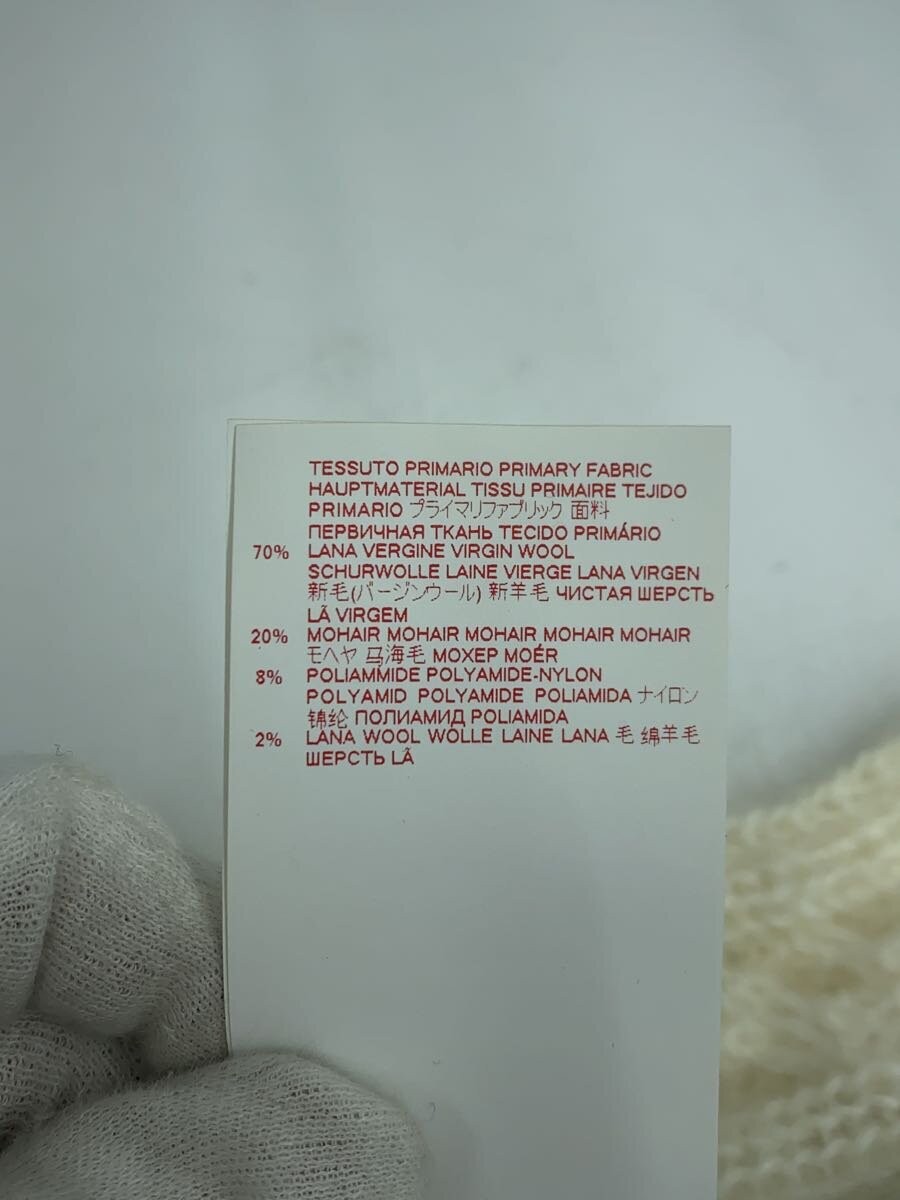 TESSUTO PRIMARIO PRIMARY FABRIC
HAUPTMATERIAL TISSU PRIMAIRE TEJIDO
PRIMARIO プライマリファブリック 面料
ПЕРВИЧНАЯ ТКАНЬ TECIDO PRIMÁRIO
70% LANA VERGINE VIRGIN WOOL
SCHURWOLLE LAINE VIERGE LANA VIRGEN
新毛(バージンウール) 新羊毛 ЧИСТАЯ ШЕРСТЬ
LÃ VIRGEM
20% MOHAIR MOHAIR MOHAIR MOHAIR MOHAIR
モヘヤ 马海毛 МОХЕР MOÉR
8% POLIAMMIDE POLYAMIDE-NYLON
POLYAMID POLYAMIDE POLIAMIDA ナイロン
锦纶 ПОЛИАМИД POLIAMIDA
2% LANA WOOL WOLLE LAINE LANA 毛 绵羊毛
ШЕРСТЬ LÃ